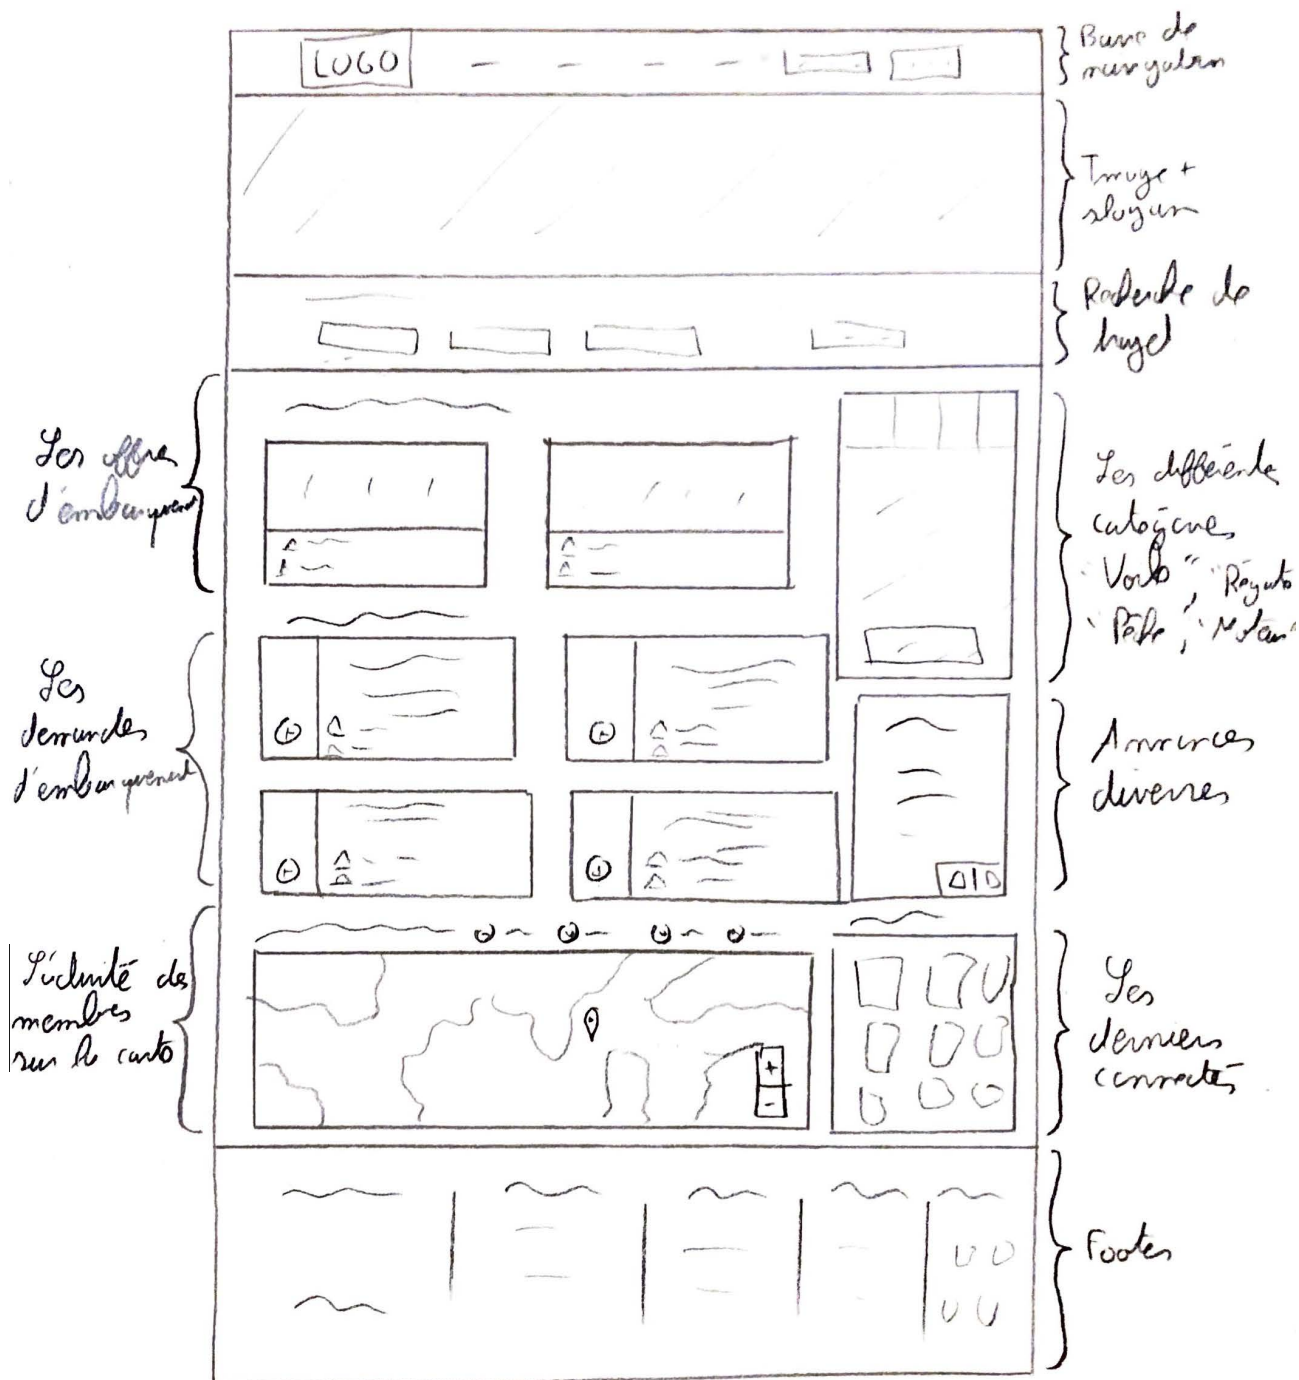 LOGO
Barre de
navigation
Image +
slogan
Recherche de
trajet
Les offres
d'embarquement
Les différentes
catégories
"Voile", "Régate"
"Pêche", "Moteur"
Les
demandes
d'embarquement
Annonces
diverses
L'activité des
membres
sur la carte
+
-
Les
derniers
connectés
Footer